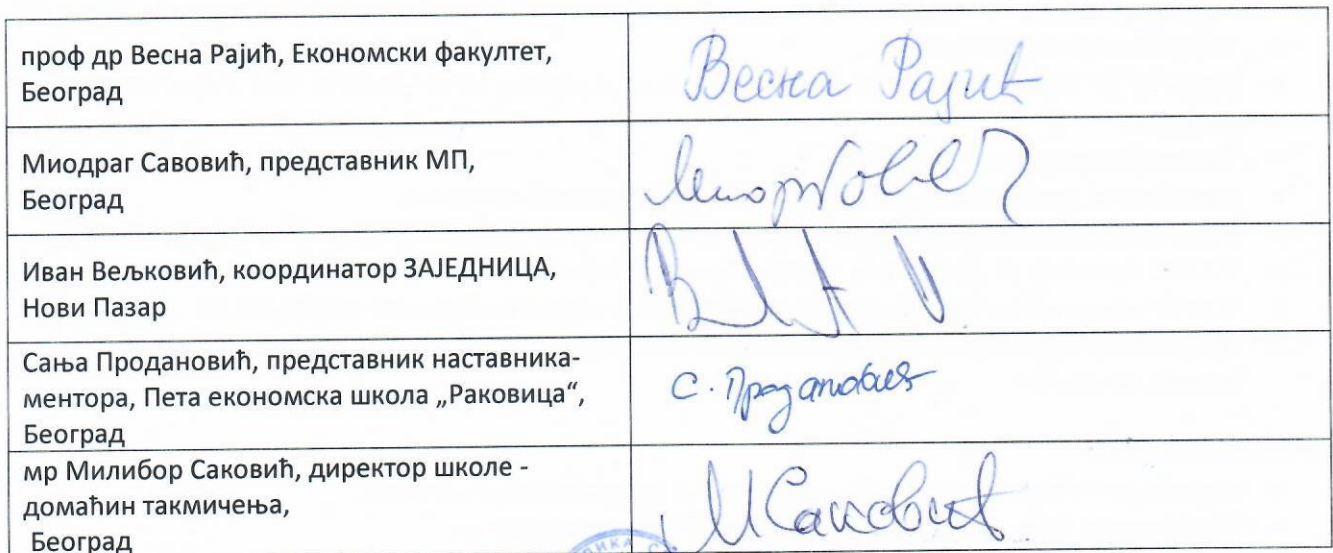 проф др Весна Рајић, Економски факултет,
Београд
Весна Рајић
Миодраг Савовић, представник МП,
Београд
Иван Вељковић, координатор ЗАЈЕДНИЦА,
Нови Пазар
Сања Продановић, представник наставника-
ментора, Пета економска школа „Раковица“,
Београд
С. Продановић
мр Милибор Саковић, директор школе -
домаћин такмичења,
Београд
МСаковић